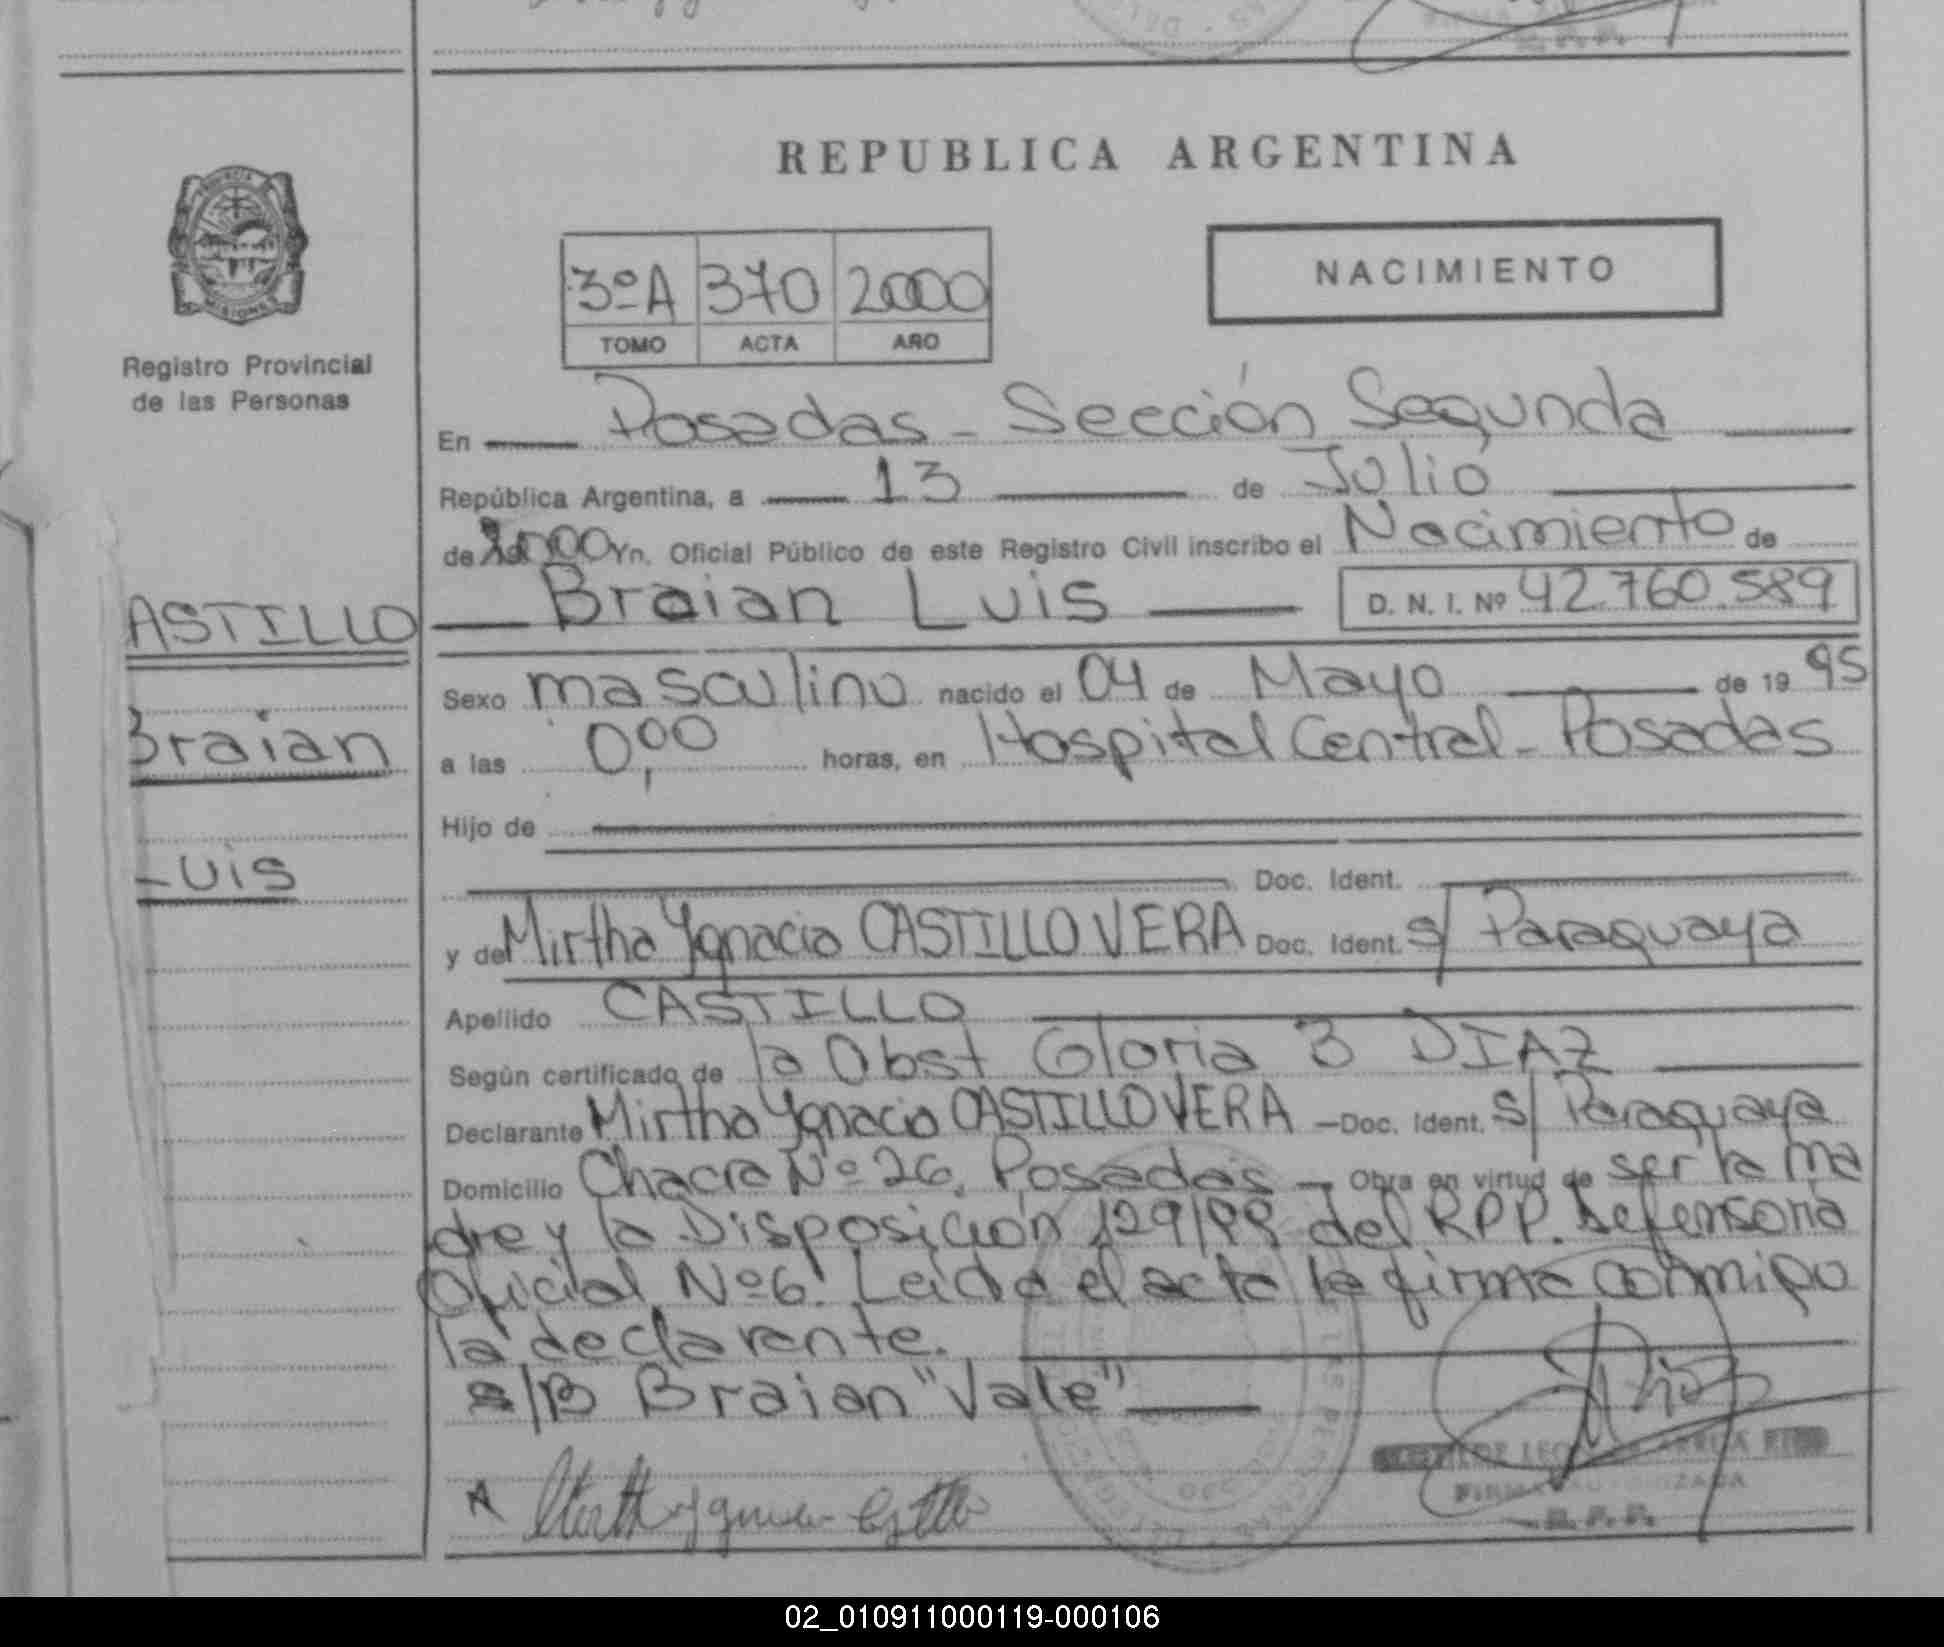 REPUBLICA ARGENTINA
3ºA 370 2000
TOMO ACTA AÑO
NACIMIENTO
Registro Provincial
de las Personas
En Posadas - Sección Segunda
República Argentina, a 13 de Julio
de 2000 Yo, Oficial Público de este Registro Civil inscribo el Nacimiento de
Braian Luis D. N. I. Nº 42.760.589
ASTILLO
Braian
Luis
Sexo masculino nacido el 04 de Mayo de 19 95
a las 0,00 horas, en Hospital Central - Posadas
Hijo de
Doc. Ident.
y de Mirtha Ygnacia CASTILLO VERA Doc. Ident. s/ Paraguaya
Apellido CASTILLO
Según certificado de la Obst Gloria B DIAZ
Declarante Mirtha Ygnacia CASTILLO VERA - Doc. Ident. s/ Paraguaya
Domicilio Chacra Nº 26, Posadas - Obra en virtud de ser la ma
dre y la Disposición 129/99 del RPP. Defensoria
Oficial Nº6. Leida el acta la firma conmigo
la declarante.
s/B Braian "Vale"
FIRMA AUTORIZADA
R. P. P.
02_010911000119-000106